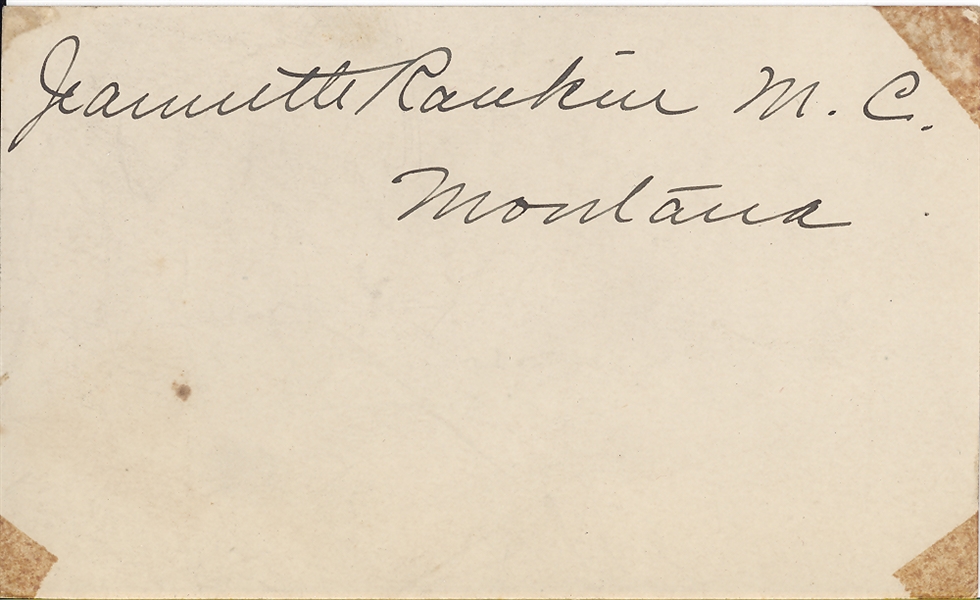 Jeannette Rankin M. C.
Montana